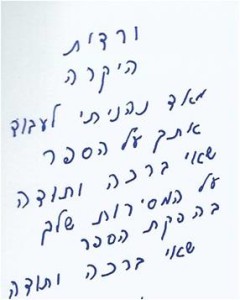 ורדית
היקרה
מאד נהניתי לעבוד
אתך על הספר
שאי ברכה ותודה
על המסירות שלך
בהפקת הספר
שאי ברכה ותודה